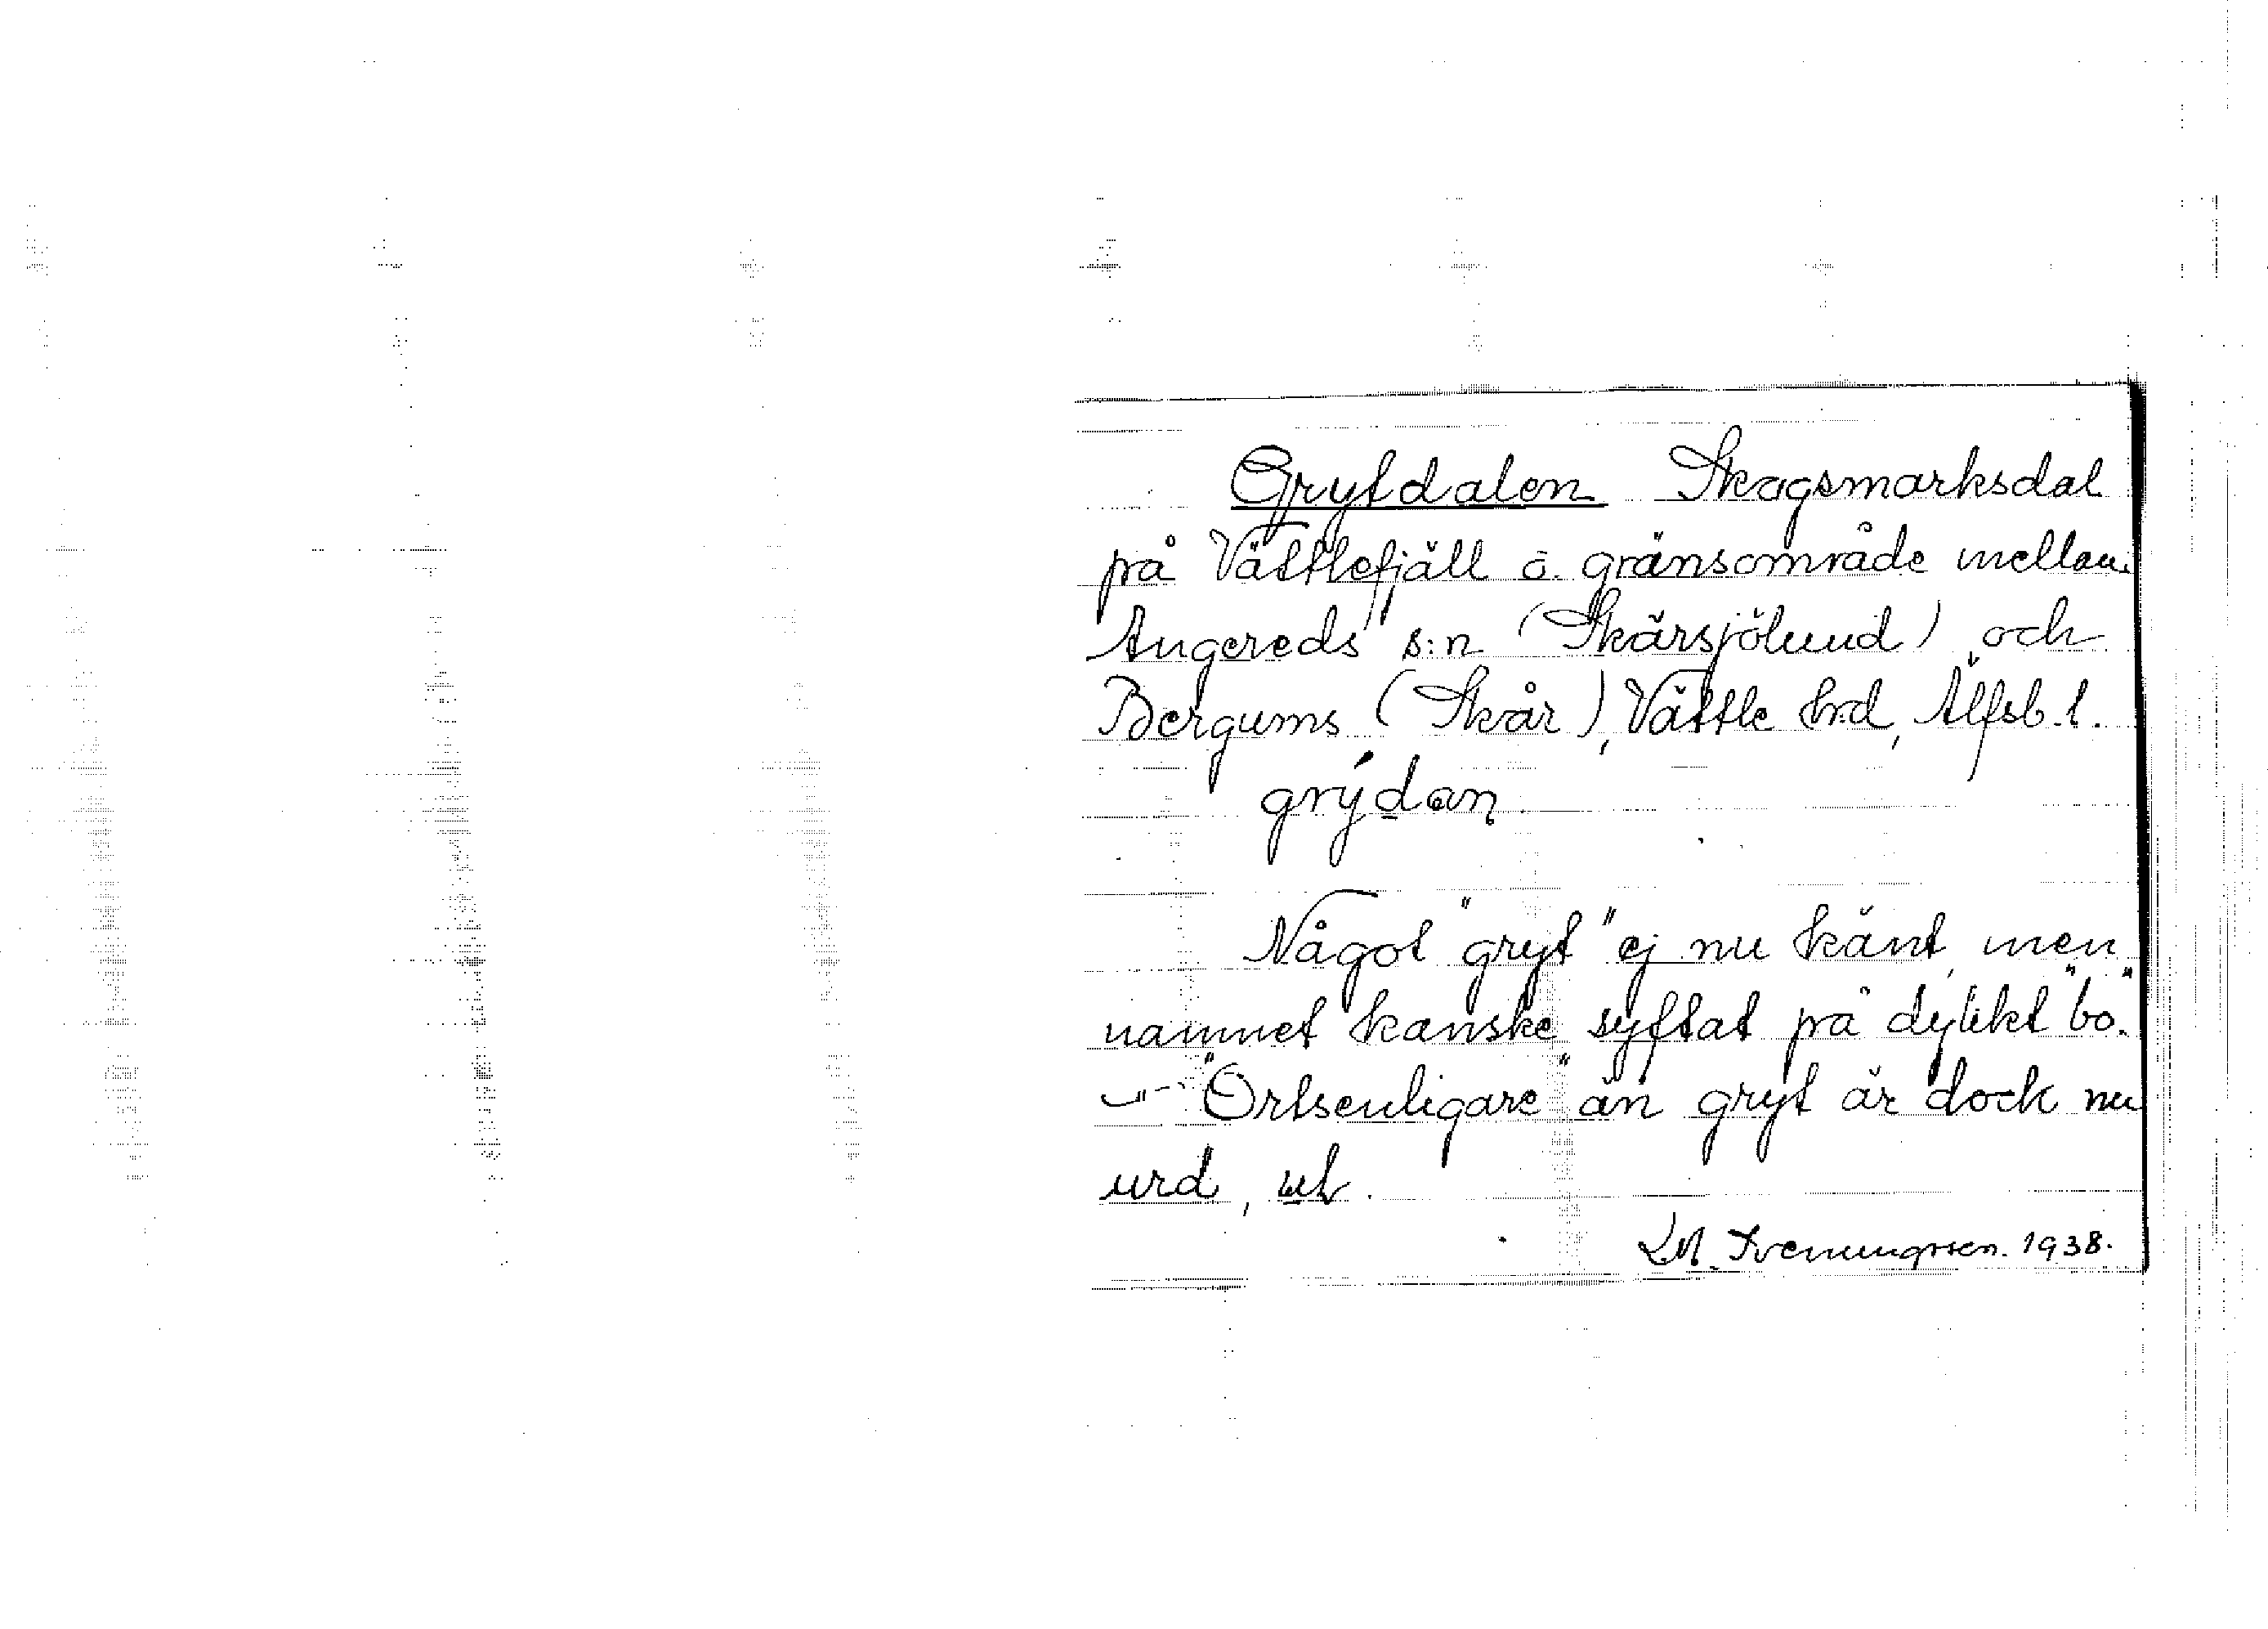 Grytdalen Skogsmarksdal
på Vättlefjäll å gränsområde mellan
Angereds s:n (Skärsjölund) och
Bergums (Skår), Vättle hrd, Älfsb. l.
grýdan
Något "gryt" ej nu känt, men
namnet kanske syftat på dylikt "bo".
"Ortsenligare" än gryt är dock nu
urd,
1938.